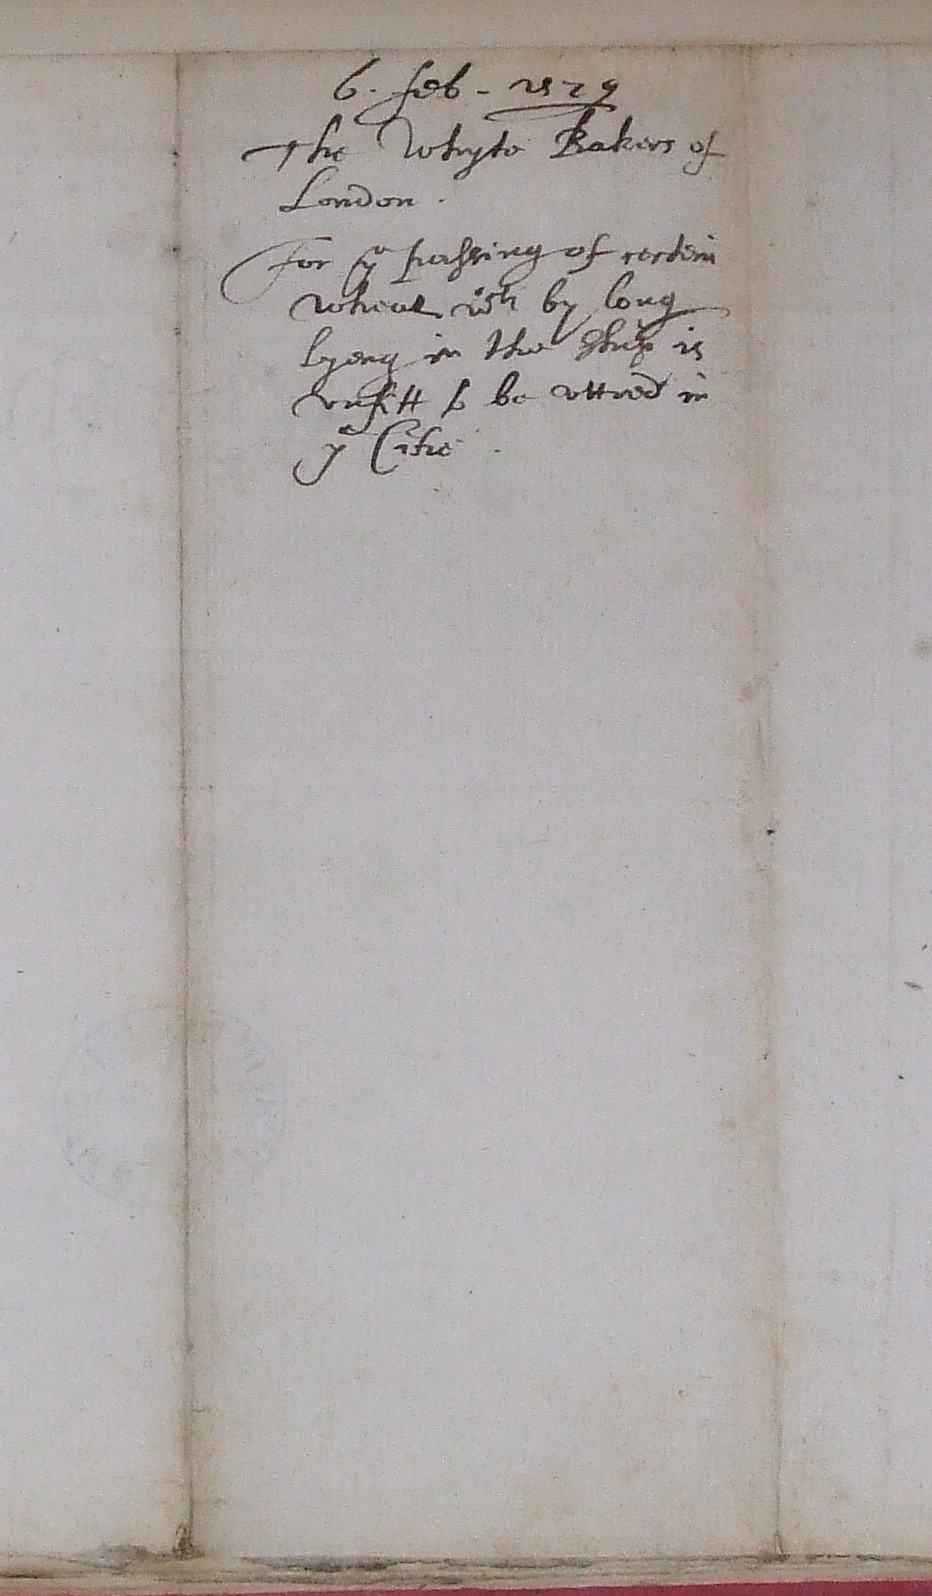 6. feb - 1579
The Whyte Bakers of
London.
For ye passing of certein
wheat wch by long
lyeng in the ship is
unfitt to be uttred in
ye Citie.